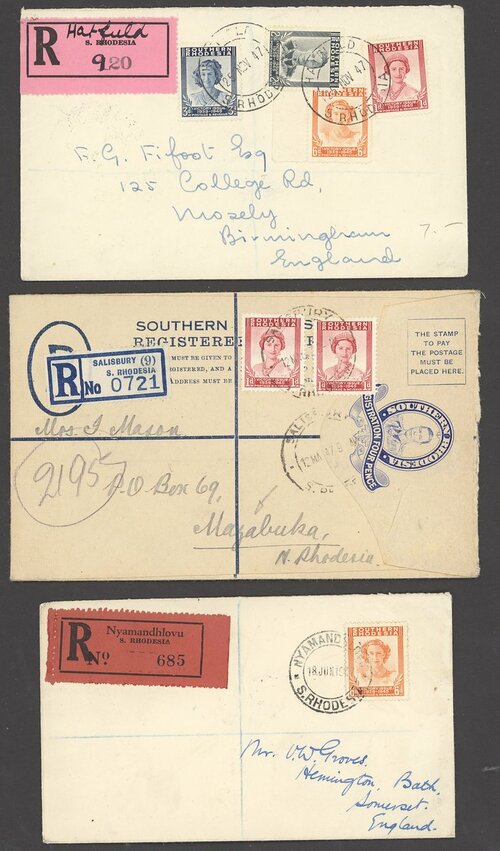 R
Hatfield
S. RHODESIA
9
120
SOUTHERN
RHODESIA
SOUTHERN
RHODESIA
25 NOV 47
NOV 47
S. RHODESIA
3d
1d
6d
F. G. Fifoot Esq
125 College Rd,
Mosely
Birmingham
England
7.-
SOUTHERN
REGISTERED
MUST BE GIVEN TO
REGISTERED, AND A
ADDRESS MUST BE
R
SALISBURY (9)
S. RHODESIA
No 0721
SOUTHERN
RHODESIA
SOUTHERN
RHODESIA
1d
1d
THE STAMP
TO PAY
THE POSTAGE
MUST BE
PLACED HERE.
SOUTHERN RHODESIA
REGISTRATION FOUR PENCE
SALISBURY
Mrs I Mason
2195
P.O Box 69,
Mazabuka,
N. Rhodesia.
R
Nyamandhlovu
S. RHODESIA
No. 685
NYAMAND
18 JUN
S. RHODESIA
SOUTHERN
RHODESIA
6d
Mr. V.W. Groves.
Hemington, Bath.
Somerset.
England.